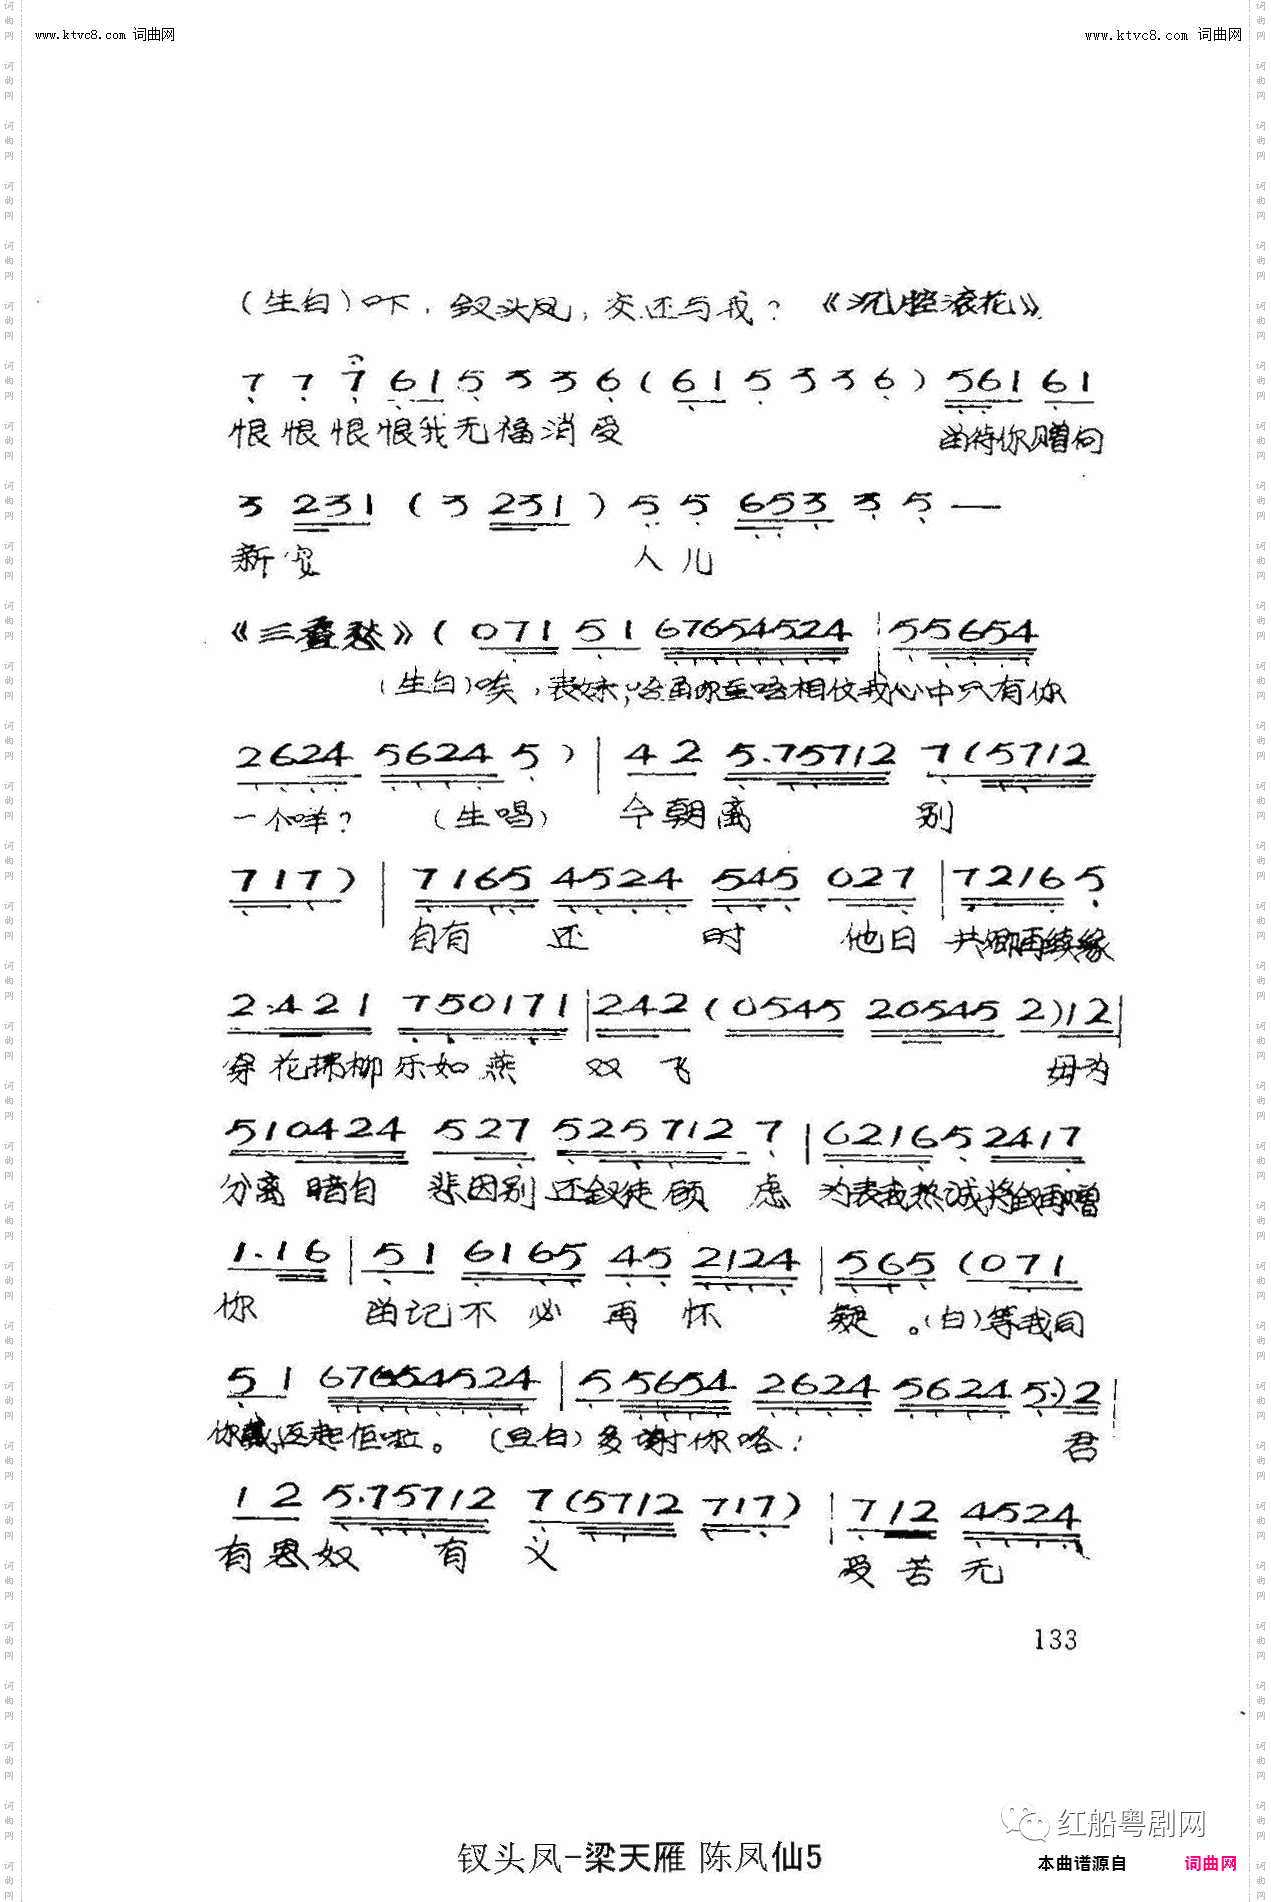 www.ktvc8.com 词曲网 www.ktvc8.com 词曲网
(生白)吓，钗头凤，交还与我？《沉腔滚花》
7 7 7 61 5 3 3 6 (61 5 3 3 6) 561 61
恨恨恨恨我无福消受 留待你赠向
3 231 (3 231) 5 5 653 3 5 —
新 人儿
《三叠愁》(071 51 67654524 | 55654
(生白)唉，表妹， 我心中只有你
2624 5624 5) | 42 5.75712 7(5712
一个咩？ (生唱) 今朝离 别
717) | 7165 4524 545 027 | 7216 5
自有 还 时 他日 共卿再续缘
2.421 750171 | 242 (0545 20545 2)12 |
穿花拂柳乐如燕 双飞 毋为
510424 527 525712 7 | 621652417
分离暗自 悲因别还钗徒顾 虑 为表我热诚将钗再赠
1.16 | 51 6165 45 2124 | 565 (071
你 留记不必再怀 疑。(白)等我同
51 67654524 | 55654 2624 5624 5.)2 |
你戴返起佢啦。(旦白)多谢你咯！ 君
12 5.75712 7(5712 717) | 712 4524
有恩奴 有 义 受苦无
133
红船粤剧网
钗头凤-梁天雁 陈凤仙5
本曲谱源自 词曲网